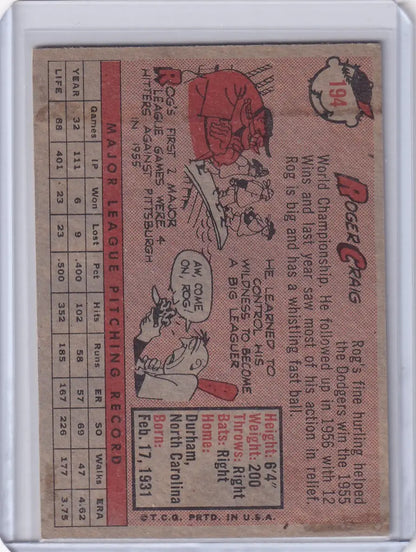 194
ROGER CRAIG
Rog's fine hurling helped
the Dodgers win the 1955
World Championship. He followed up in 1956 with 12
Wins and last year saw most of his action in relief.
Rog is big and has a whistling fast ball.
ROG'S FIRST 2 MAJOR
LEAGUE GAMES WERE 4
HITTERS AGAINST PITTSBURGH
IN 1955
HE LEARNED TO
CONTROL HIS
WILDNESS TO BECOME
A BIG LEAGUER
AW, COME
ON, ROG!
Height: 6'4"
Weight: 200
Throws: Right
Bats: Right
Home:
Durham,
North Carolina
Born:
Feb. 17, 1931
MAJOR LEAGUE PITCHING RECORD
Games IP Won Lost Pct Hits Runs ER SO Walks ERA
YEAR 32 111 6 9 .400 102 58 57 69 47 4.62
LIFE 68 401 23 23 .500 352 185 167 226 177 3.75
© T.C.G. PRTD. IN U.S.A.